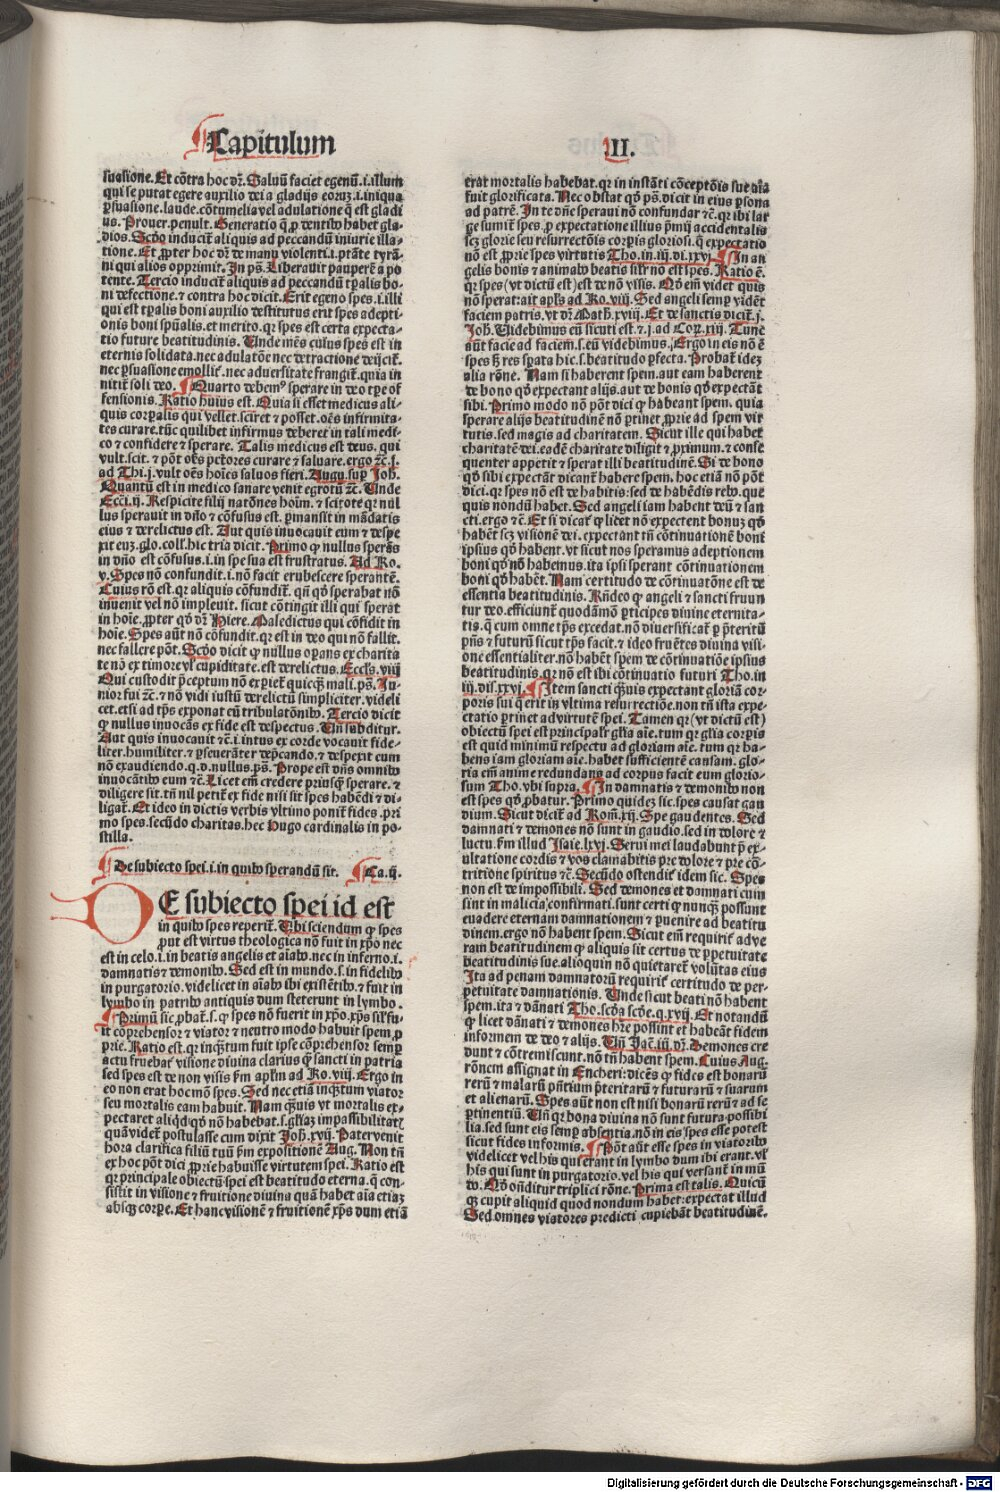 Capitulum
.II.
suasione. Et cõtra hoc dr̃. Saluũ faciet egenũ. i. illum
qui se putat egere auxilio dei a gladijs eorũ. i. iniqua
ꝑsuasione. laude. cõtumelia vel adulatione q̃ est gladi
us. Prouer. penult. Generatio q̃ ꝓ dentibꝰ habet gla
dios. Scḋo inducũt aliquis ad peccandũ iniurie illa-
tione. Et ꝓpter hoc dr̃ de manu violenti. i. ptãte tyrã-
ni qui alios opprimit. In ps̃. Liberauit pauperẽ a po
tente. Tercio inducũt aliquis ad peccandũ tꝑalis bo-
ni defectione. ⁊ contra hoc dicit. Erit egeno spes. i. illi
qui est tꝑalis boni auxilio destitutus erit spes adepti-
onis boni spũalis. et merito. qꝛ spes est certa expecta-
tio future beatitudinis. Unde mẽs cuius spes est in
eternis solidata. nec adulatõe nec detractione deijcit̃.
nec ꝑsuasione emollit̃. nec aduersitate frangit̃. quia in
nitit̃ soli deo. Quarto debemꝰ sperare in deo tꝑe of
fensionis. Ratio huius est. Quia si esset medicus ali-
quis corꝑalis qui vellet. sciret ⁊ posset. oẽs infirmita-
tes curare. tũc quilibet infirmus deberet in tali medi-
co ⁊ confidere ⁊ sperare. Talis medicus est deus. qui
vult. scit. ⁊ põt oẽs pctõres curare ⁊ saluare. ergo ⁊c̃. j.
ad Thi. j. vult oẽs hoĩes saluos fieri. Augu. suꝑ Joh.
Quantũ est in medico sanare venit egrotũ ⁊c̃. Unde
Ecci. ij. Respicite filij natões hoĩm. ⁊ scitote qꝛ nul
lus sperauit in dño ⁊ cõfusus est. ꝑmansit in mãdatis
eius ⁊ derelictus est. Aut quis inuocauit eum ⁊ despe
xit euȝ. glo. coll. hic tria dicit. Primo ꝙ nullus sperãs
in dño est cõfusus. i. in spe sua est frustratus. Ad Ro.
v. Spes nõ confundit. i. nõ facit erubescere sperantẽ.
Cuius rõ est. qꝛ aliquis cõfundit̃. qñ qḋ sperabat nõ
inuenit vel nõ impleuit. sicut cõtingit illi qui sperat
in hoĩe. ꝓpter qḋ dr̃ Hiere. Maledictus qui cõfidit in
hoĩe. Spes aũt nõ cõfundit. qꝛ est in deo qui nõ fallit.
nec fallere põt. Scḋo dicit ꝙ nullus oꝑans ex charita
te nõ ex timore vl̃ cupiditate. est derelictus. Eccl̃s. viij
Qui custodit p̃ceptum nõ expiet̃ quicq̃ȝ mali. ps̃. Ju-
nior fui ⁊c̃. ⁊ nõ vidi iustũ derelictũ simpliciter. videli
cet. etsi ad tp̃s exponat cũ tribulatõnibꝰ. Tercio dicit
ꝙ nullus inuocãs ex fide est despectus. Uñ subditur.
Aut quis inuocauit ⁊c̃. i. intus ex corde vocauit fide-
liter. humiliter. ⁊ ꝑseuerãter dep̃cando. ⁊ despexit eum
nõ exaudiendo. q. d. nullus. ps̃. Prope est dñs omnibꝰ
inuocãtibꝰ eum ⁊c̃. Licet em̃ credere priusq̃ȝ sperare. ⁊
diligere sit. tñ nil petit̃ ex fide nisi sit spes habẽdi ⁊ di-
ligat̃. Et ideo in dictis verbis vltimo ponit̃ fides. pri
mo spes. secũdo charitas. hec Hugo cardinalis in po-
stilla.
De subiecto spei. i. in quibꝰ sperandũ sit. Ca. ij.
E subiecto spei id est
in quibꝰ spes reperit̃. Ubi sciendum ꝙ spes
ꝓut est virtus theologica nõ fuit in xp̃o nec
est in celo. i. in beatis angelis et aĩabꝰ. nec in inferno. i.
damnatis ⁊ demonibꝰ. Sed est in mundo. s. in fidelibꝰ
in purgatorio. videlicet in aĩabꝰ ibi existẽtibꝰ. ⁊ fuit in
lymbo in patribꝰ antiquis dum steterunt in lymbo.
Primũ sic ꝓbat̃. s. ꝙ spes nõ fuerit in xp̃o. xp̃s sil̃ fu-
it cõprehensor ⁊ viator ⁊ neutro modo habuit spem ꝓ
prie. Ratio est. qꝛ inq̃tum fuit ipse cõprehensor semꝑ
actu fruebat̃ visione diuina clarius q̃ȝ sancti in patria
sed spes est de non visis fm̃ apl̃m ad Ro. viij. Ergo in
eo non erat hocmõ spes. Sed nec etiã inq̃tum viator
seu mortalis eam habuit. Nam q̃uis vt mortalis ex-
pectaret aliqḋ qḋ nõ habebat. s. gl̃iaȝ impassibilitat̃
quã videt̃ postulasse cum dixit Joh. xvij. Pater venit
hora clarifica filiũ tuũ fm̃ expositionẽ Aug. Non tñ
ex hoc põt dici ꝓprie habuisse virtutem spei. Ratio est
qꝛ principale obiectũ spei est beatitudo eterna. q̃ con-
sistit in visione ⁊ fruitione diuina quã habet aĩa etiaȝ
absq̃ȝ corꝑe. Et hanc visionẽ ⁊ fruitionẽ xp̃s dum etiã
erat mortalis habebat. qꝛ in instãti cõceptõis sue aĩa
fuit glorificata. Nec obstat qḋ ps̃. dicit in eius ꝑsona
ad patrẽ. In te dñe speraui nõ confundar ⁊c̃. qꝛ ibi lar
ge sumit̃ spes. ꝓ expectatione illius p̃mij accidentalis
scȝ glorie seu resurrectõis corꝑis gloriosi. q̃ expectatio
nõ est ꝓprie spes virtutis Tho. in. iij. di. xxvj. In an
gelis bonis ⁊ animabꝰ beatis sil̃r nõ est spes. Ratio ẽ.
qꝛ spes (vt dictũ est) est de nõ visis. Qḋ em̃ videt quis
nõ sperat: ait apl̃s ad Ro. viij. Sed angeli semꝑ vidẽt
faciem patris. vt dr̃ Math. xviij. Et de sanctis dicit̃. j.
Joh. Uidebimus eũ sicuti est. ⁊. j. ad Cor̃. xiij. Tunc
aũt facie ad faciem. s. eũ videbimus. Ergo in eis nõ ẽ
spes sȝ res sꝑata hic. s. beatitudo ꝑfecta. Probat̃ ideȝ
alia rõne. Nam si haberent spem. aut eam haberent
de bono qḋ expectant alijs. aut de bonis qḋ expectãt
sibi. Primo modo nõ põt dici ꝙ habeant spem. quia
sperare alijs beatitudinẽ nõ ꝑtinet ꝓprie ad spem vir
tutis. sed magis ad charitatem. Sicut ille qui habet
charitatẽ dei. eadẽ charitate diligit ⁊ ꝓximum. ⁊ conse
quenter appetit ⁊ sperat illi beatitudinẽ. Si de bono
qḋ sibi expectãt dicant̃ habere spem. hoc etiã nõ põt
dici. qꝛ spes nõ est de habitis: sed de habẽdis rebꝰ. que
quis nondũ habet. Sed angeli iam habent deũ ⁊ san
cti. ergo ⁊c̃. Et si dicat̃ ꝙ licet nõ expectent bonuȝ qḋ
habẽt scȝ visionẽ dei. expectant tñ cõtinuationẽ boni
ipsius qḋ habent. vt sicut nos speramus adeptionem
boni qḋ nõ habemus. ita ipsi sperant cõtinuationem
boni qḋ habẽt. Nam certitudo de cõtinuatõne est de
essentia beatitudinis. Rñdeo ꝙ angeli ⁊ sancti fruun
tur deo. efficiunt̃ quodãmõ ꝑticipes diuine eternita-
tis. q̃ cum omne tp̃s excedat. nõ diuersificat̃ ꝑ p̃teritũ
pñs ⁊ futurũ sicut tp̃s facit. ⁊ ideo fruẽtes diuina visi-
one essentialiter. nõ habẽt spem de cõtinuatiõe ipsius
beatitudinis. qꝛ nõ est ibi cõtinuatio futuri Tho. in
iij. dis. xxvj. Item sancti q̃uis expectant gloriã cor-
poris sui q̃ erit in vltima resurrectiõe. non tñ ista expe-
ctatio ꝑtinet ad virtutẽ spei. Tamen qꝛ (vt dictũ est)
obiectũ spei est principalr̃ gl̃ia aĩe. tum qꝛ gl̃ia corꝑis
est quid minimũ respectu ad gloriam aĩe. tum qꝛ ha-
bens iam gloriam aĩe. habet sufficientẽ causam. glo-
ria em̃ anime redundans ad corpus facit eum glorio-
sum Tho. vbi supra. In damnatis ⁊ demonibꝰ non
est spes qḋ ꝓbatur. Primo quideȝ sic. spes causat gau
dium. Sicut dicit̃ ad Rom̃. xij. Spe gaudentes. Sed
damnati ⁊ demones nõ sunt in gaudio. sed in dolore ⁊
luctu. fm̃ illud Isaie. lxvj. Serui mei laudabunt p̃ ex-
ultatione cordis ⁊ vos clamabitis pre dolore ⁊ pre cõ-
tritione spiritus ⁊c̃. Secũdo ostendit̃ idem sic. Spes
non est de impossibili. Sed demones et damnati cum
sint in malicia confirmati. sunt certi ꝙ nunq̃ȝ possunt
euadere eternam damnationem ⁊ ꝑuenire ad beatitu
dinem. ergo nõ habent spem. Sicut em̃ requirit̃ ad ve
ram beatitudinem ꝙ aliquis sit certus de ꝑpetuitate
beatitudinis sue. alioquin nõ quietaret̃ volũtas eius
Ita ad penam damnatorũ requirit̃ certitudo de per-
petuitate damnationis. Unde sicut beati nõ habent
spem. ita ⁊ dãnati Tho. scḋa scḋe. q. xvij. Et notandũ
ꝙ licet dãnati ⁊ demones hr̃e possint et habeãt fidem
informem de deo ⁊ alijs. Uñ Jac. iij. dr̃. Demones cre
dunt ⁊ cõtremiscunt. nõ tñ habent spem. Cuius Aug.
rõnem assignat in Encheri: dicẽs ꝙ fides est bonarũ
rerũ ⁊ malarũ pñtium p̃teritarũ ⁊ futurarũ ⁊ suarum
et alienarũ. Spes aũt non est nisi bonarũ rerũ ⁊ ad se
ꝑtinentiũ. Uñ qꝛ bona diuina nõ sunt futura possibi
lia. sed sunt eis semꝑ absentia. nõ in eis spes esse potest
sicut fides informis. Põt aũt esse spes in viatoribꝰ
videlicet vel his qui erant in lymbo dum ibi erant. vl̃
his qui sunt in purgatorio. vel his qui versant̃ in mũ
do. Qḋ oñditur triplici rõne. Prima est talis. Quicũ
q̃ȝ cupit aliquid quod nondum habet: expectat illud
Sed omnes viatores predicti cupiebãt beatitudinẽ.
Digitalisierung gefördert durch die Deutsche Forschungsgemeinschaft - DFG